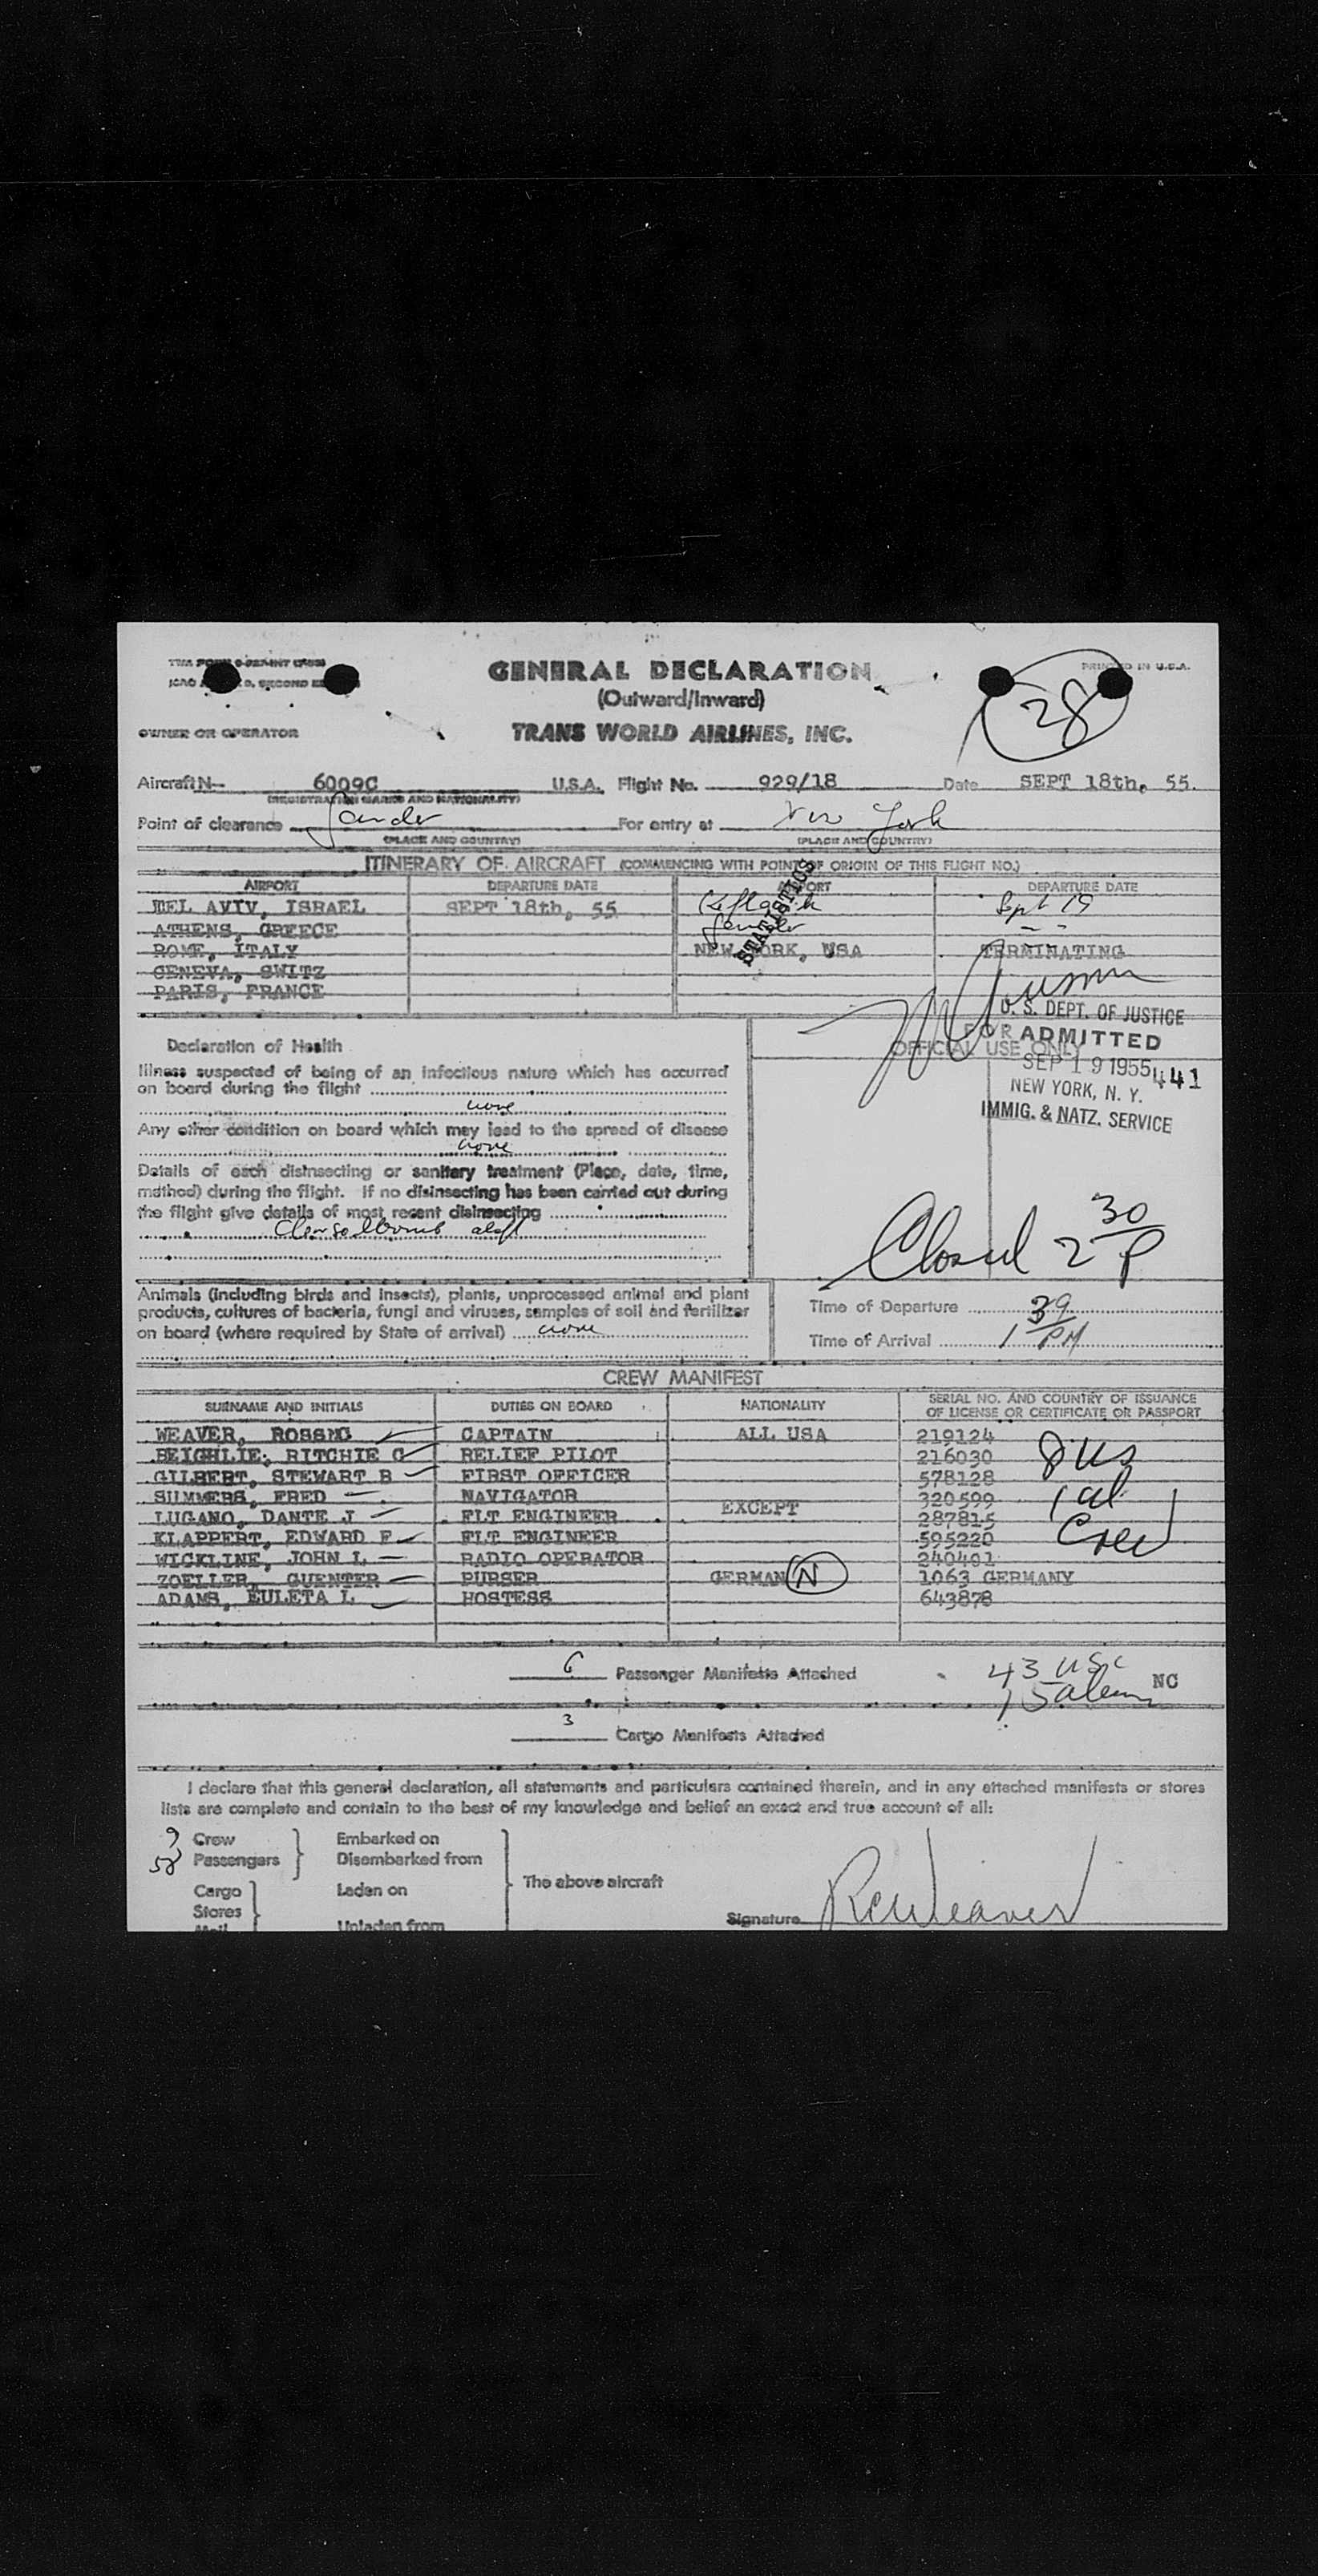 GENERAL DECLARATION
(Outward/Inward)
PRINTED IN U.S.A.
28
OWNER OR OPERATOR
TRANS WORLD AIRLINES, INC.
Aircraft N- 6009C U.S.A. Flight No. 929/18 Date SEPT 18th, 55.
(REGISTRATION MARKS AND NATIONALITY)
Point of clearance Gander For entry at New York
(PLACE AND COUNTRY) (PLACE AND COUNTRY)
ITINERARY OF AIRCRAFT (COMMENCING WITH POINT OF ORIGIN OF THIS FLIGHT NO.)
AIRPORT DEPARTURE DATE AIRPORT DEPARTURE DATE
TEL AVIV, ISRAEL SEPT 18th, 55 Keflavik Sept 19
ATHENS, GREECE Gander - -
ROME, ITALY NEW YORK, USA TERMINATING
GENEVA, SWITZ
PARIS, FRANCE
STATISTICS
U. S. DEPT. OF JUSTICE
ADMITTED
FOR OFFICIAL USE ONLY
SEP 19 1955 441
NEW YORK, N. Y.
IMMIG. & NATZ. SERVICE
Declaration of Health
Illness suspected of being of an infectious nature which has occurred
on board during the flight
none
Any other condition on board which may lead to the spread of disease
none
Details of each disinsecting or sanitary treatment (Place, date, time,
method) during the flight. If no disinsecting has been carried out during
the flight give details of most recent disinsecting
Closed 2 30 P
Animals (including birds and insects), plants, unprocessed animal and plant
products, cultures of bacteria, fungi and viruses, samples of soil and fertilizer
on board (where required by State of arrival) none
Time of Departure
Time of Arrival 1 39 PM
CREW MANIFEST
SURNAME AND INITIALS DUTIES ON BOARD NATIONALITY SERIAL NO. AND COUNTRY OF ISSUANCE
OF LICENSE OR CERTIFICATE OR PASSPORT
WEAVER, ROSSMG CAPTAIN ALL USA 219124
BEIGHLIE, RITCHIE G RELIEF PILOT 216030
GILBERT, STEWART B FIRST OFFICER 578128
SUMMERS, FRED NAVIGATOR 320599
LUGANO, DANTE J FLT ENGINEER EXCEPT 287815
KLAPPERT, EDWARD F FLT ENGINEER 595220
WICKLINE, JOHN L RADIO OPERATOR 240401
ZOELLER, GUENTER PURSER GERMAN N 1063 GERMANY
ADAMS, EULETA L HOSTESS 643878
8 us
1 al
Crew
6 Passenger Manifests Attached
43 usc
15 aliens NC
3 Cargo Manifests Attached
I declare that this general declaration, all statements and particulars contained therein, and in any attached manifests or stores
lists are complete and contain to the best of my knowledge and belief an exact and true account of all:
9 Crew Embarked on
58 Passengers Disembarked from
The above aircraft
Cargo Laden on
Stores
Mail Unladen from
Signature RCWeaver